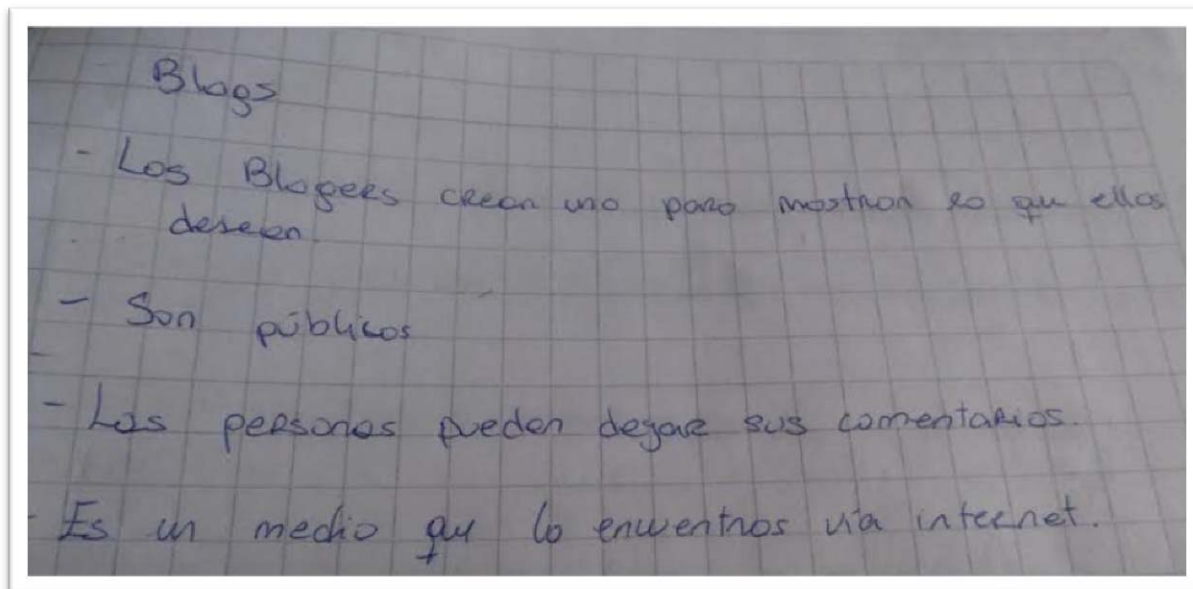 Blogs
- Los Blogers crean uno para mostrar lo que ellos
deseen
- Son públicos
- Las personas pueden dejar sus comentarios.
- Es un medio que lo encuentras vía internet.